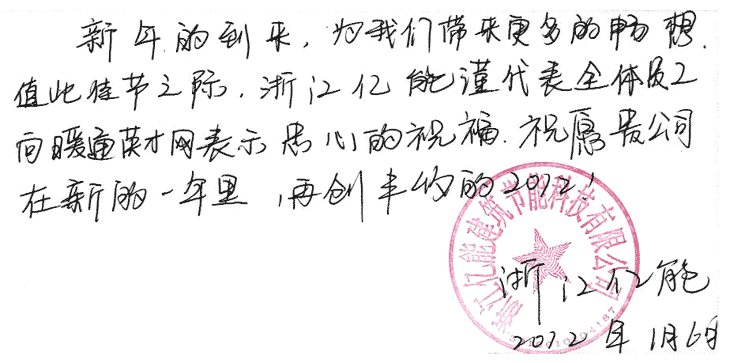 新年的到来，为我们带来更多的畅想.
值此佳节之际.浙江亿能谨代表全体员工
向暖通英才网表示忠心的祝福.祝愿贵公司
在新的一年里，再创丰收的2012！
浙江亿能建筑节能科技有限公司
浙江亿能
2012年1月6日